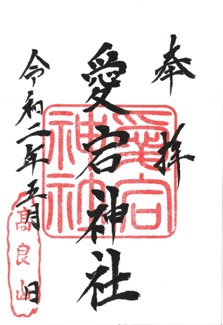 奉拝
愛宕神社
愛宕神社
令和二年五月 日
高良山